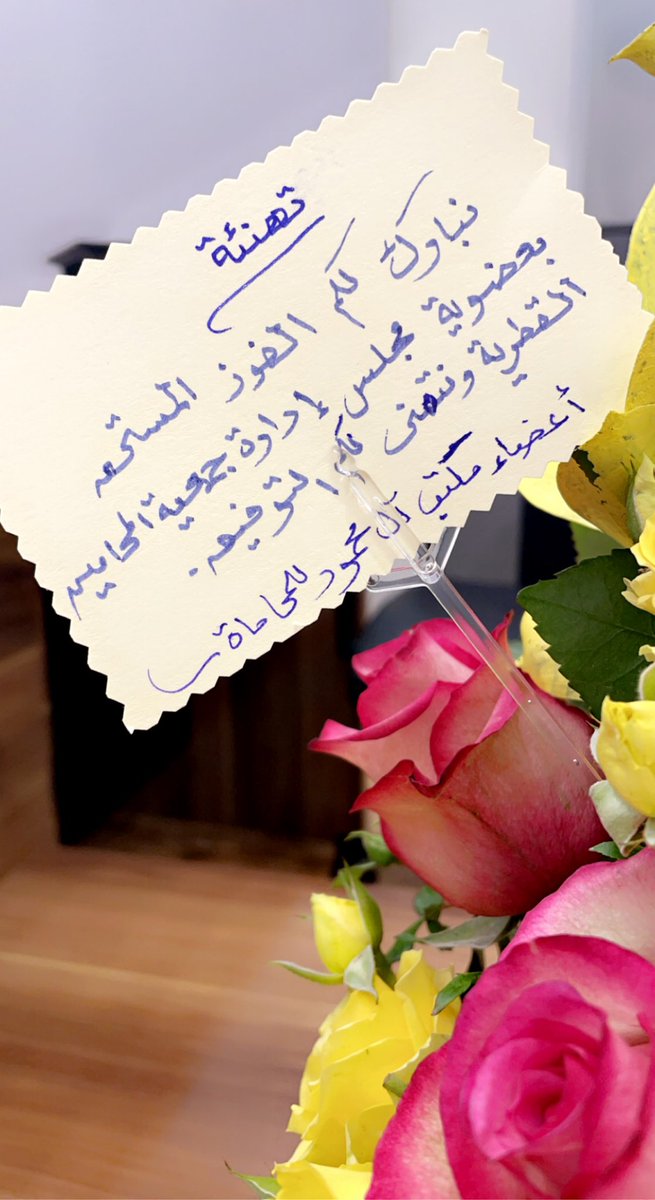 تهنئة
نبارك لكم الفوز المستحق
بعضوية مجلس إدارة جمعية المحامين
القطرية ونتمنى لكم التوفيق.
أعضاء مكتب آل محمود للمحاماة